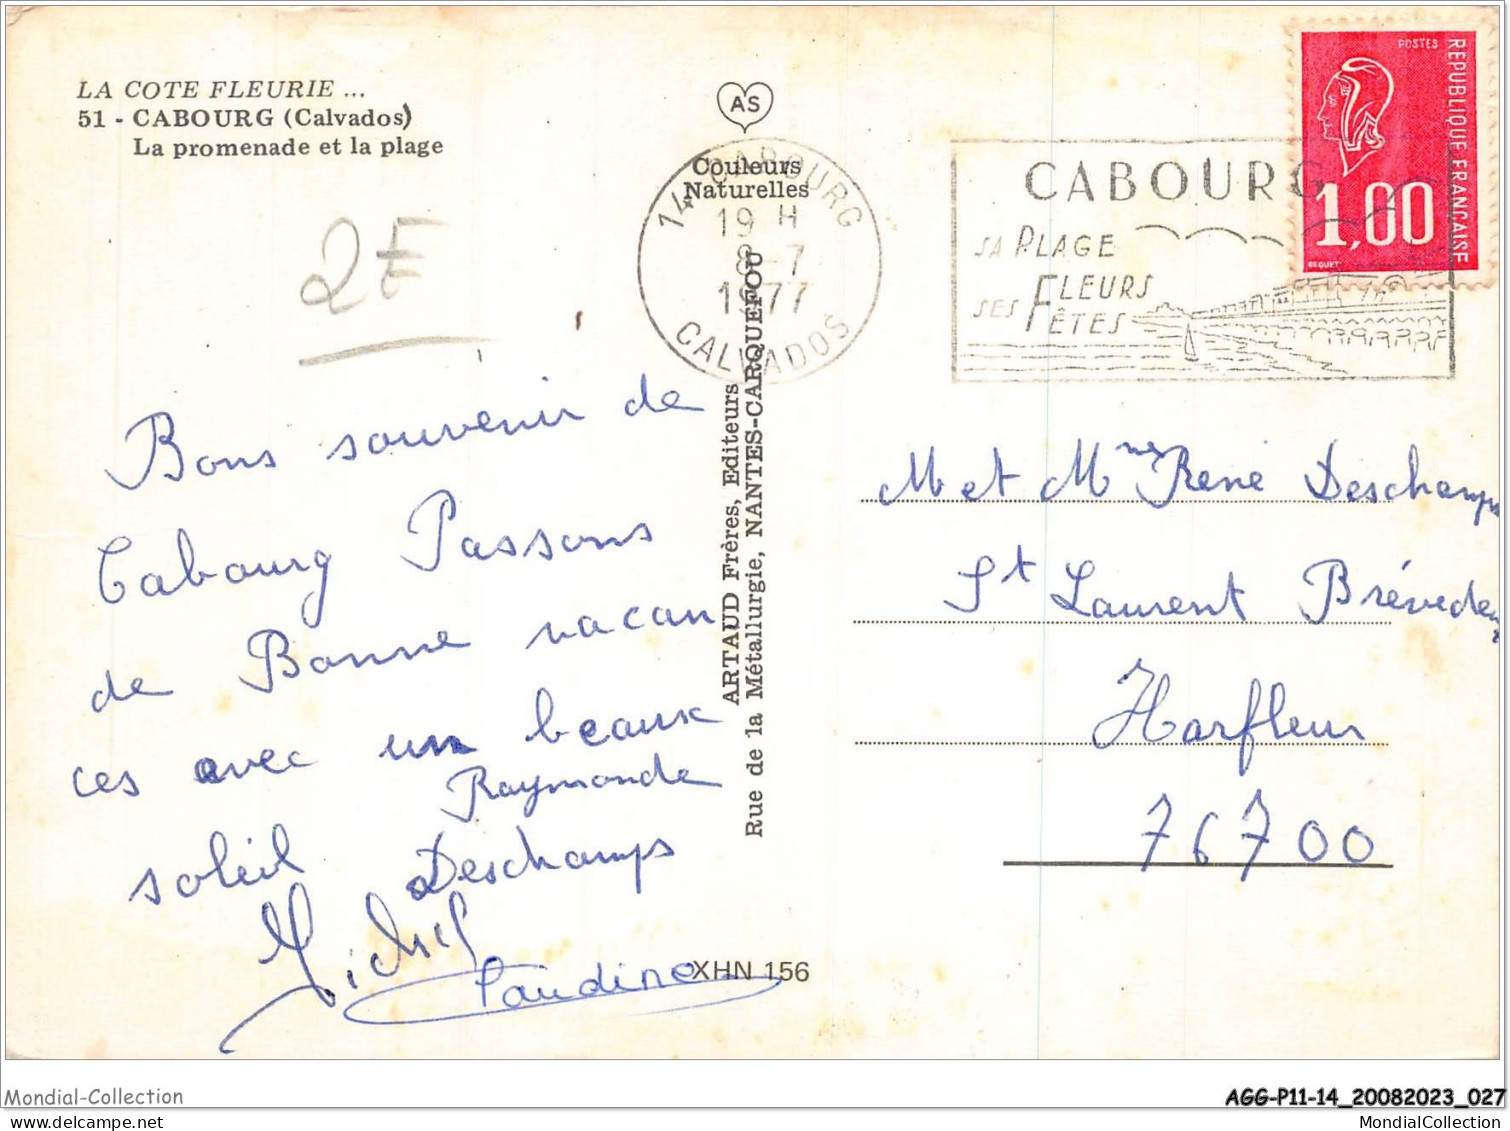 LA COTE FLEURIE ...
51 - CABOURG (Calvados)
La promenade et la plage
2E
AS
Couleurs
Naturelles
14 CABOURG
19 H
8-7
1977
CALVADOS
CABOURG
SA PLAGE
SES FLEURS
FÊTES
POSTES
REPUBLIQUE FRANÇAISE
1,00
BEQUET
Bons souvenir de
Cabourg Passons
de Bonne vacan
ces avec un beaux
soleil
Raymonde
Deschamps
Michel
Claudine
ARTAUD Frères, Editeurs
Rue de la Métallurgie, NANTES-CARQUEFOU
XHN 156
M et Mme René Deschamps
St Laurent Brévedent
Harfleur
76700
Mondial-Collection
AGG-P11-14_20082023_027
MondialCollection